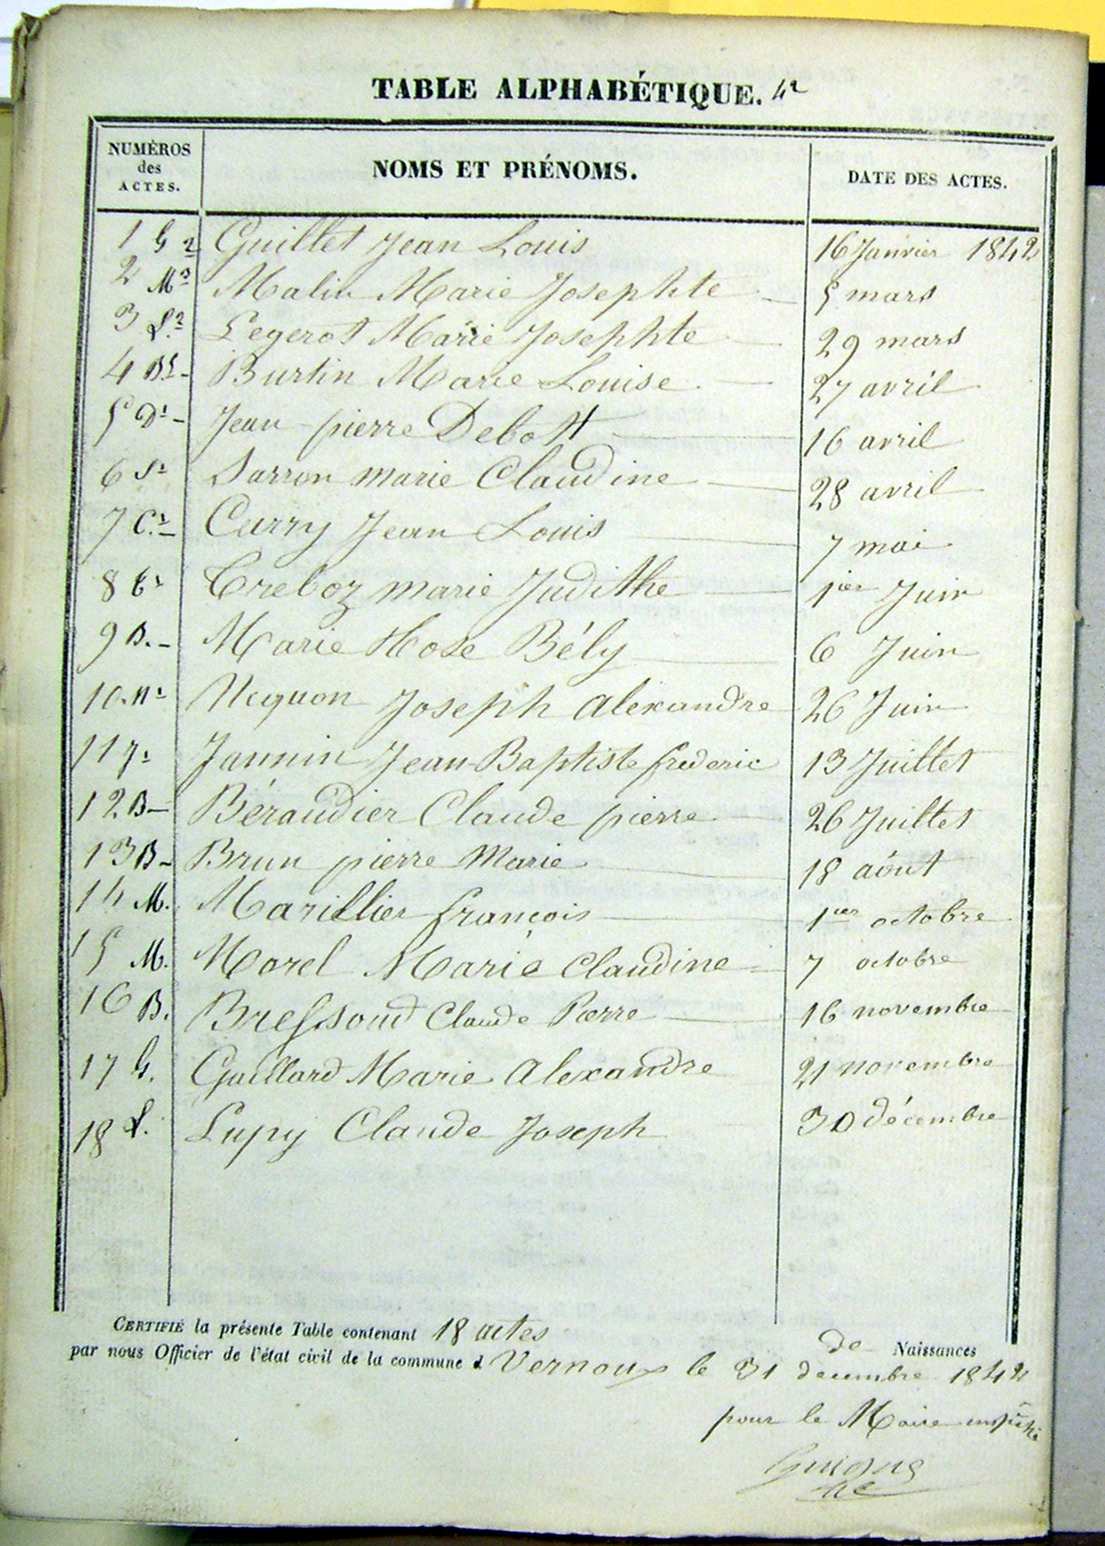 TABLE ALPHABÉTIQUE.
NUMÉROS des ACTES. NOMS ET PRÉNOMS. DATE DES ACTES.
1 G Guillet Jean Louis 16 Janvier 1842
2 M Malin Marie Josephte 5 mars
3 L Legerot Marie Josephte 29 mars
4 B Burtin Marie Louise 27 avril
5 D Jean pierre Debost 16 avril
6 S Sarron marie Claudine 28 avril
7 C Curry Jean Louis 7 mai
8 t Treboz marie Judithe 1ier Juin
9 B. Marie Rose Bély 6 Juin
10 Joseph alexandre 26 Juin
11 J Jannin Jean Baptiste frederic 13 Juillet
12 B Béraudier Claude pierre 26 Juillet
13 B Brun pierre Marie 18 aôut
14 M. Marillier françois 1ier octobre
15 M. Morel Marie Claudine 7 octobre
16 B. Bressoud Claude Pierre 16 novembre
17 G. Guillard Marie Alexandre 21 novembre
18 L. Lupy Claude Joseph 30 décembre
CERTIFIÉ la présente Table contenant 18 actes de Naissances
par nous Officier de l'état civil de la commune d Vernoux le 31 decembre 1842
pour le Maire